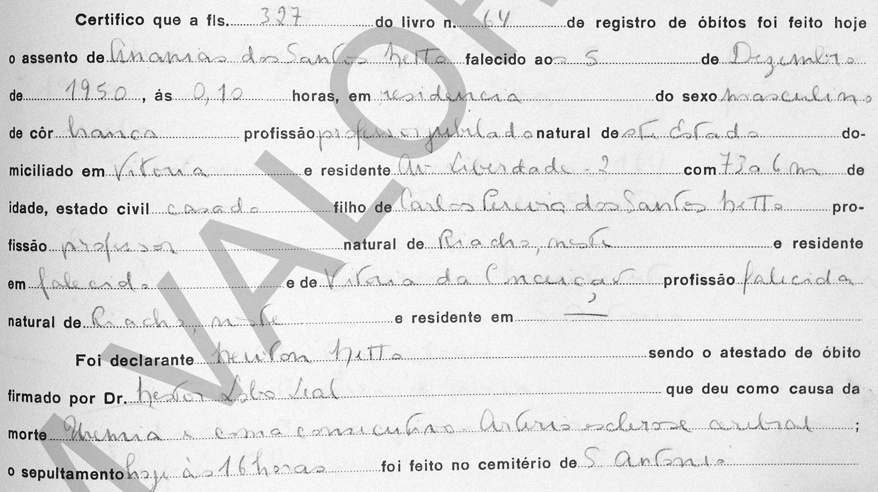 Certifico que a fls. 327 do livro n. 64 de registro de óbitos foi feito hoje
o assento de Ananias dos Santos Netto falecido aos 5 de Dezembro
de 1950, ás 0,10 horas, em residencia do sexo masculino
de côr branca profissão professor jubilado natural de este Estado do-
miciliado em Vitoria e residente Av. Liberdade - 2 com 73 a 6 m de
idade, estado civil casado filho de Carlos Pereira dos Santos Netto pro-
fissão professor natural de Riacho, neste e residente
em falecido e de Vitoria da Conceição profissão falecida
natural de Riacho, neste e residente em
Foi declarante Newton Netto sendo o atestado de óbito
firmado por Dr. Nestor Lobo Leal que deu como causa da
morte Uremia e coma consecutivo. Arterio esclerose cerebral ;
o sepultamento hoje às 16 horas foi feito no cemitério de S. Antonio
VALOR